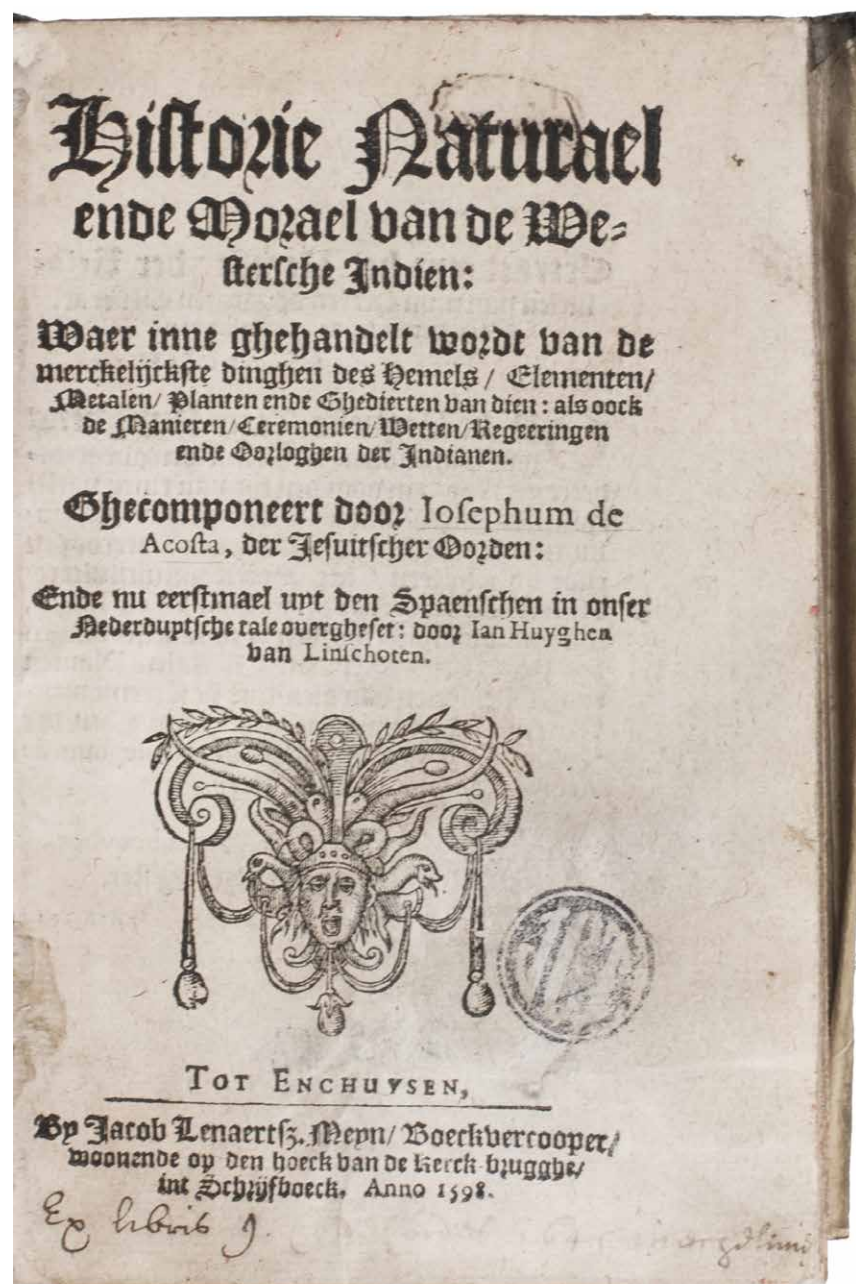 Historie Naturael
ende Morael van de We-
stersche Indien:
Waer inne ghehandelt wordt van de
merckelijckste dinghen des Hemels / Elementen/
Metalen/ Planten ende Ghedierten van dien: als oock
de Manieren/Ceremonien/Wetten/Regeeringen
ende Oorloghen der Indianen.
Ghecomponeert door Iosephum de
Acosta, der Jesuitscher Oorden:
Ende nu eerstmael uyt den Spaenschen in onser
Nederduytsche tale overgheset: door Ian Huyghen
van Linschoten.
TOT ENCHUYSEN,
By Jacob Lenaertsz. Meyn/ Boeckvercooper/
woonende op den hoeck van de kerck-brugghe/
int Schrijfboeck. Anno 1598.
Ex libris J.